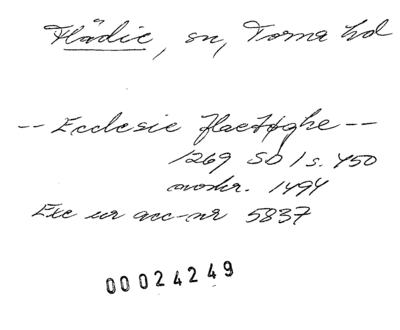 Flädie, sn, Torna hd
-- Ecclesie flaetøghe --
1269 SD 1 s. 450
avskr. 1494
Exc ur acc-nr 5837
00024249